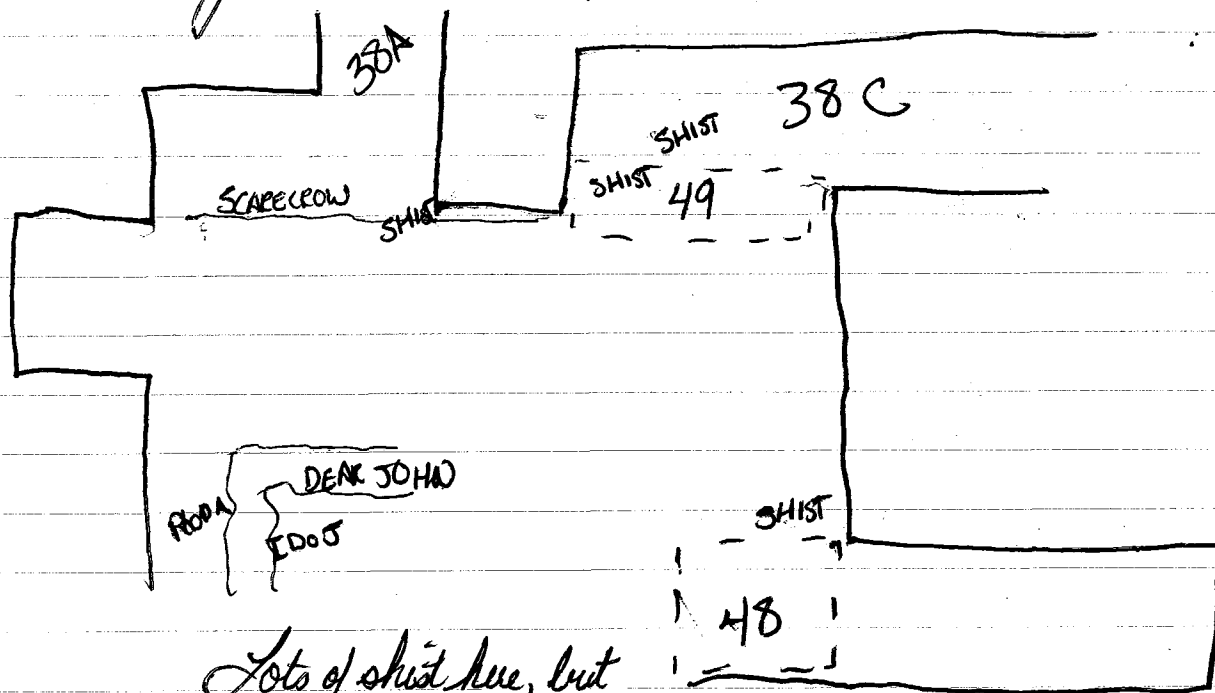 38A
38 C
SHIST
SHIST
49
SCARECROW
SHIST
DEAR JOHN
IDOJ
SHIST
48
Lots of shist here, but